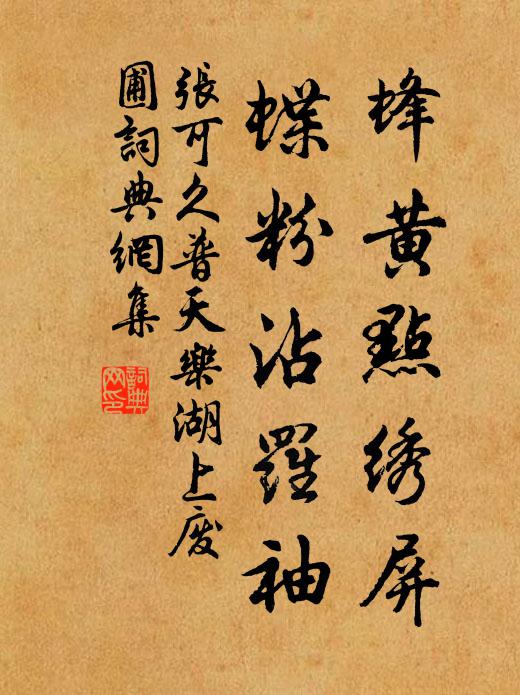 蜂黄點綉屏
蝶粉沾羅袖
張可久普天樂湖上废
圃詞典網集
詞典
网印